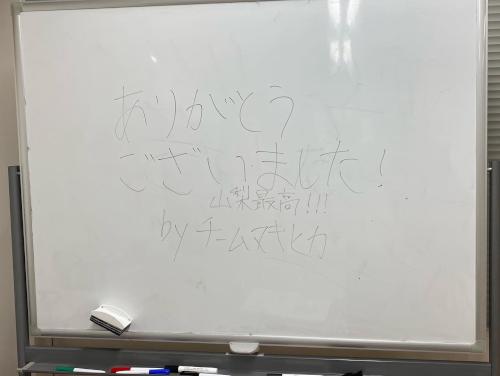 ありがとう
ございました!
山梨最高!!!
by チームマキヒカ